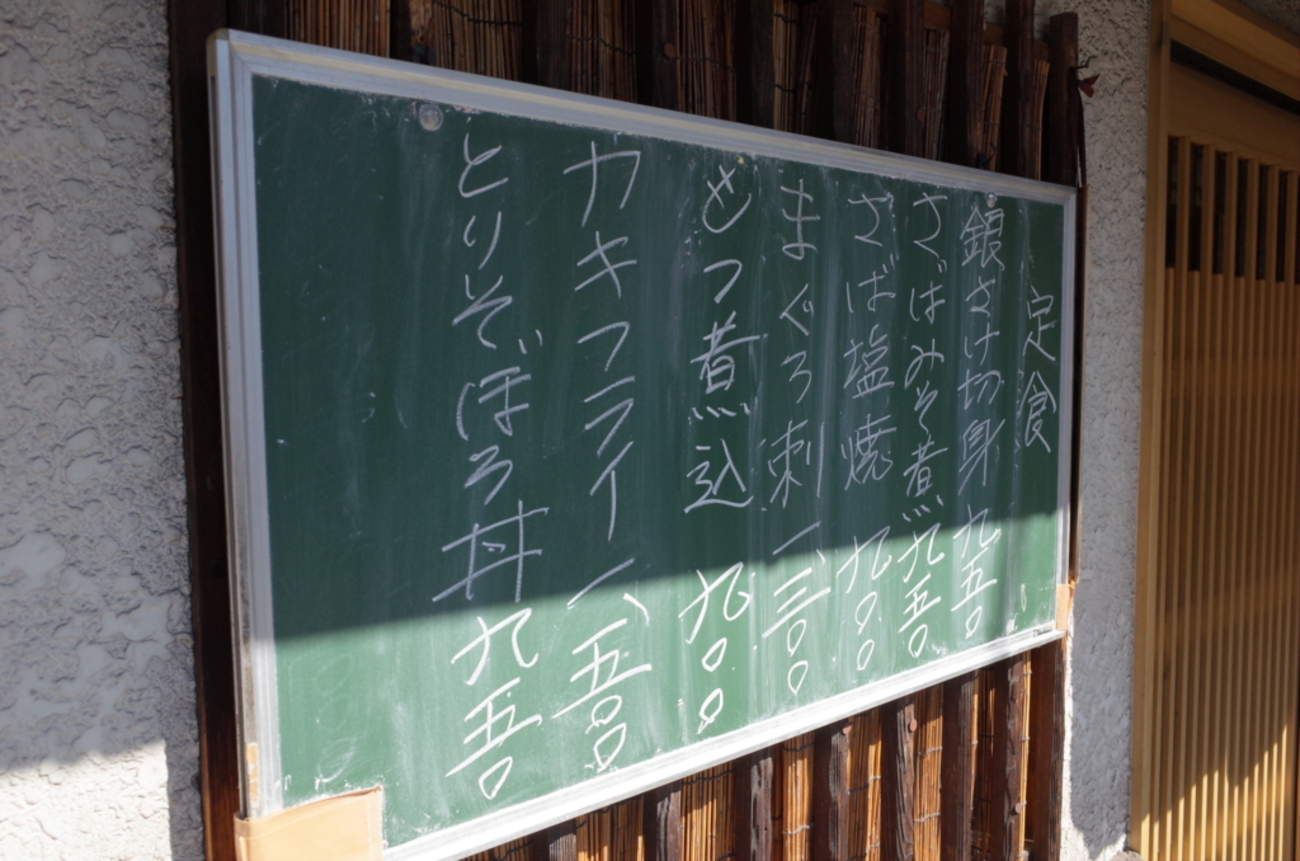 定食
銀さけ切身 九五〇
さばみそ煮 九五〇
さば塩焼 九〇〇
まぐろ刺 一、三〇〇
もつ煮込 九〇〇
カキフライ 一、五〇〇
とりそぼろ丼 九五〇